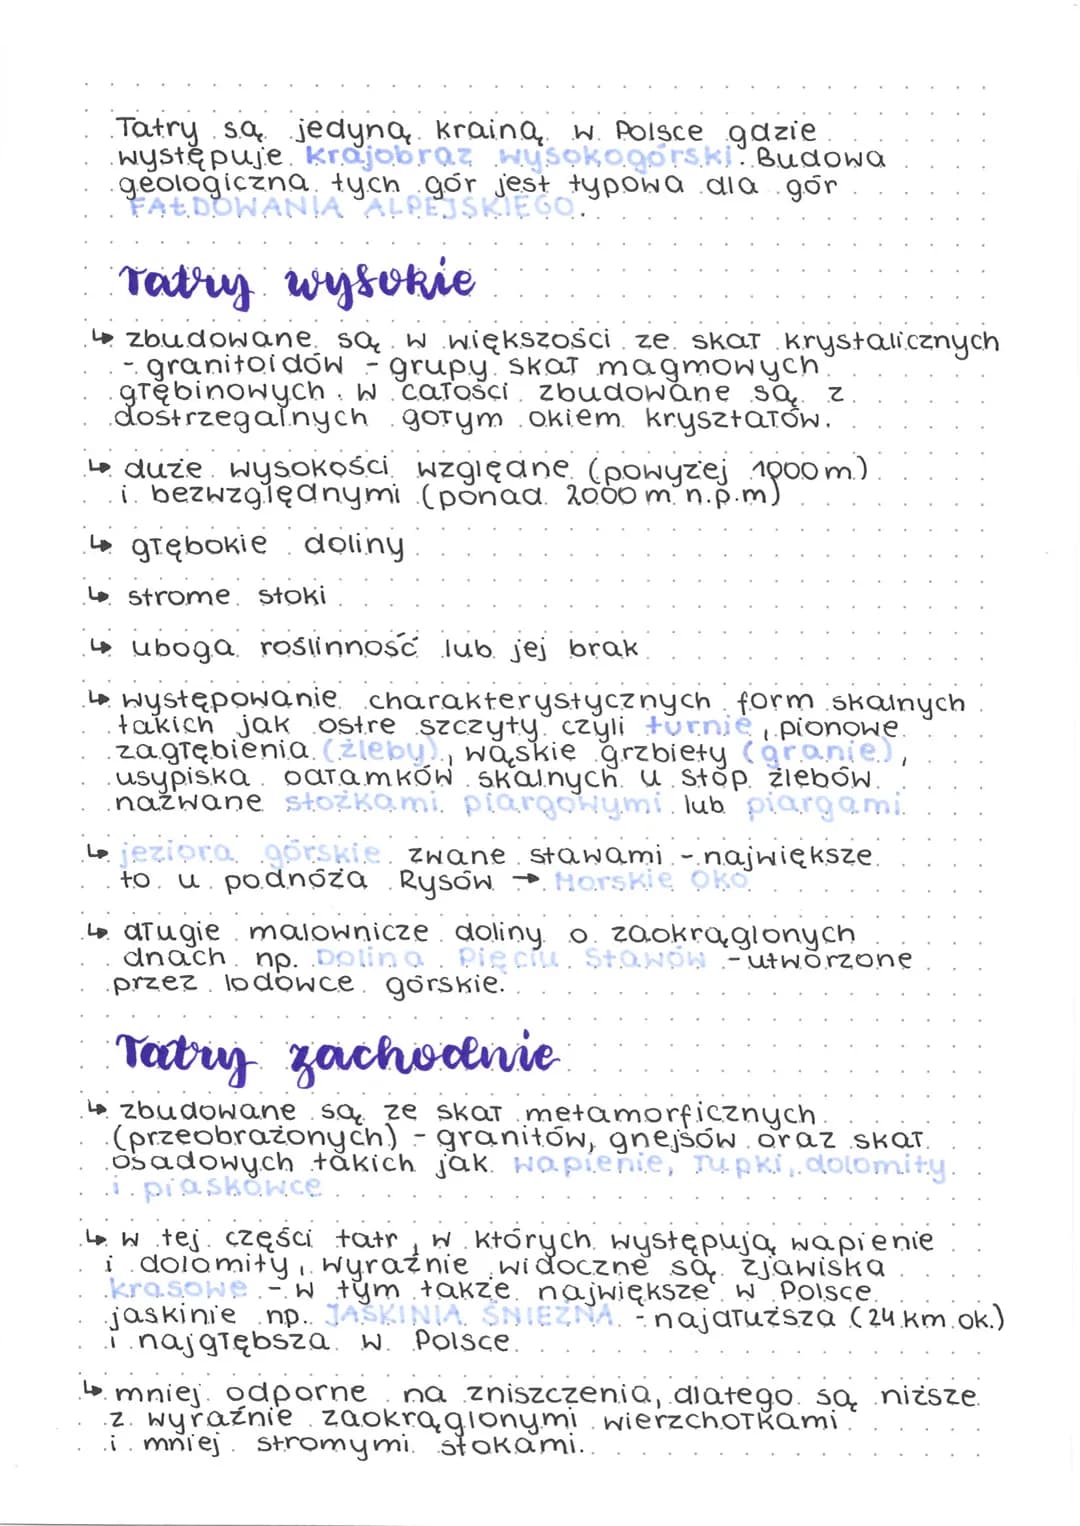 Tatry są jedyną krainą w Polsce gdzie
występuje krajobraz wysokogórski. Budowa
geologiczna tych gór jest typowa dla gór
FAŁDOWANIA ALPEJSKIEGO.
Tatry wysokie
↳ zbudowane są w większości ze skał krystalicznych
- granitoidów - grupy skał magmowych
głębinowych. W całości zbudowane są z
dostrzegalnych gołym okiem kryształów.
↳ duże wysokości względne (powyżej 1000 m)
i bezwzględnymi (ponad 2000 m n.p.m)
↳ głębokie doliny
↳ strome stoki
↳ uboga roślinność lub jej brak
↳ występowanie charakterystycznych form skalnych
takich jak ostre szczyty czyli turnie, pionowe
zagłębienia (żleby), wąskie grzbiety (granie),
usypiska odłamków skalnych u stóp żlebów
nazwane stożkami piargowymi lub piargami.
↳ jeziora górskie zwane stawami - największe
to u podnóża Rysów → Morskie Oko
↳ długie malownicze doliny o zaokrąglonych
dnach np. Dolina Pięciu Stawów - utworzone
przez lodowce górskie.
Tatry zachodnie
↳ zbudowane są ze skał metamorficznych
(przeobrażonych) - granitów, gnejsów oraz skał
osadowych takich jak wapienie, łupki, dolomity
i piaskowce
↳ w tej części tatr, w których występują wapienie
i dolomity, wyraźnie widoczne są zjawiska
krasowe - w tym także największe w Polsce
jaskinie np. JASKINIA ŚNIEŻNA - najdłuższa (24 km ok.)
i najgłębsza w Polsce.
↳ mniej odporne na zniszczenia, dlatego są niższe
z wyraźnie zaokrąglonymi wierzchołkami
i mniej stromymi stokami.